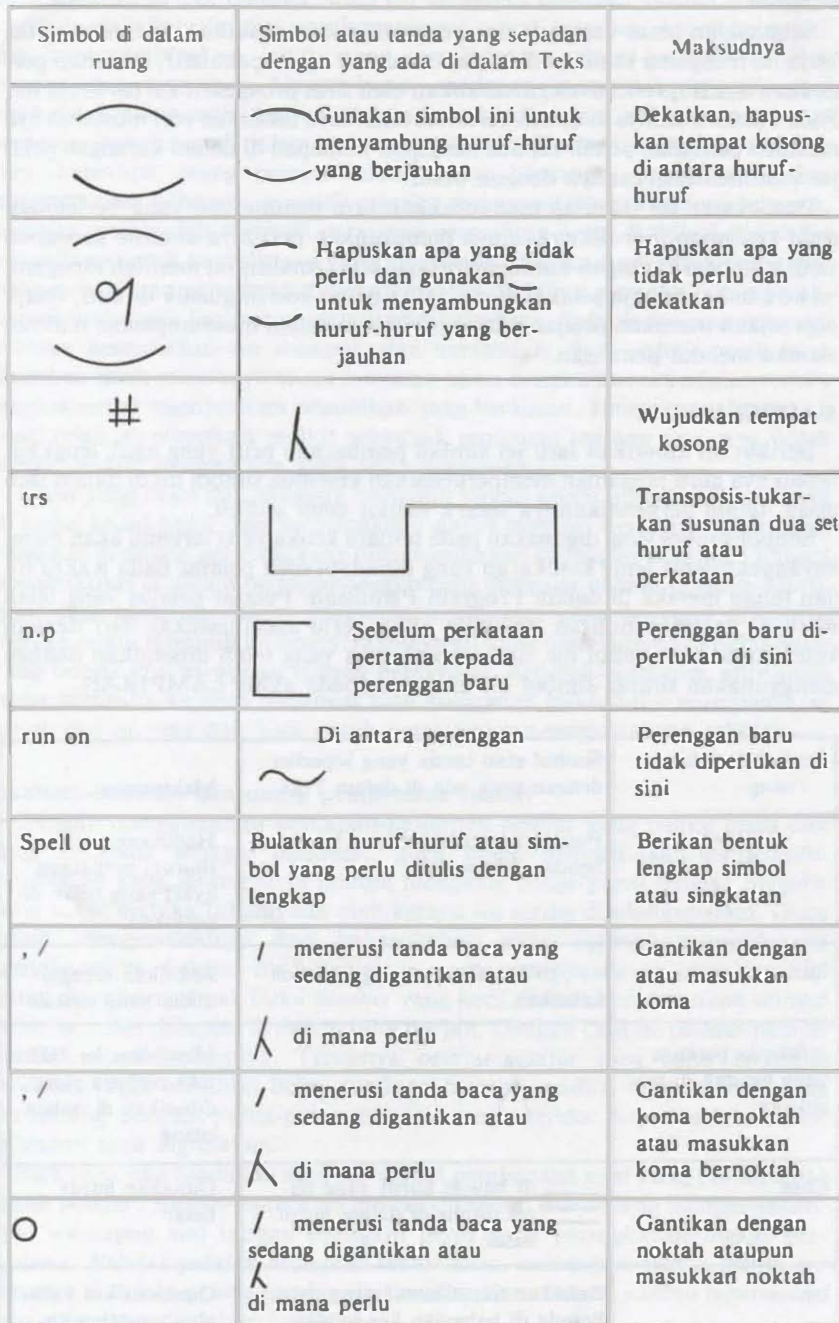 Simbol di dalam
ruang
Simbol atau tanda yang sepadan
dengan yang ada di dalam Teks
Maksudnya
Gunakan simbol ini untuk
menyambung huruf-huruf
yang berjauhan
Dekatkan, hapus-
kan tempat kosong
di antara huruf-
huruf
Hapuskan apa yang tidak
perlu dan gunakan
untuk menyambungkan
huruf-huruf yang ber-
jauhan
Hapuskan apa yang
tidak perlu dan
dekatkan
#
Wujudkan tempat
kosong
trs
Transposis-tukar-
kan susunan dua set
huruf atau
perkataan
n.p
Sebelum perkataan
pertama kepada
perenggan baru
Perenggan baru di-
perlukan di sini
run on
Di antara perenggan
Perenggan baru
tidak diperlukan di
sini
Spell out
Bulatkan huruf-huruf atau sim-
bol yang perlu ditulis dengan
lengkap
Berikan bentuk
lengkap simbol
atau singkatan
, /
/ menerusi tanda baca yang
sedang digantikan atau
di mana perlu
Gantikan dengan
atau masukkan
koma
, /
/ menerusi tanda baca yang
sedang digantikan atau
di mana perlu
Gantikan dengan
koma bernoktah
atau masukkan
koma bernoktah
/ menerusi tanda baca yang
sedang digantikan atau
di mana perlu
Gantikan dengan
noktah ataupun
masukkan noktah